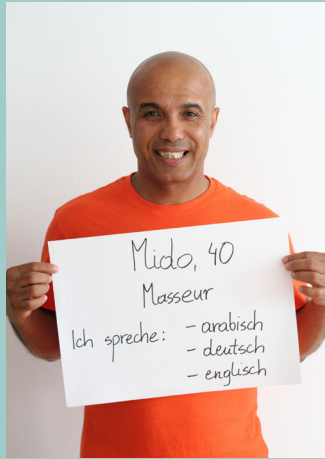 Mido, 40
Masseur
Ich spreche: - arabisch
- deutsch
- englisch